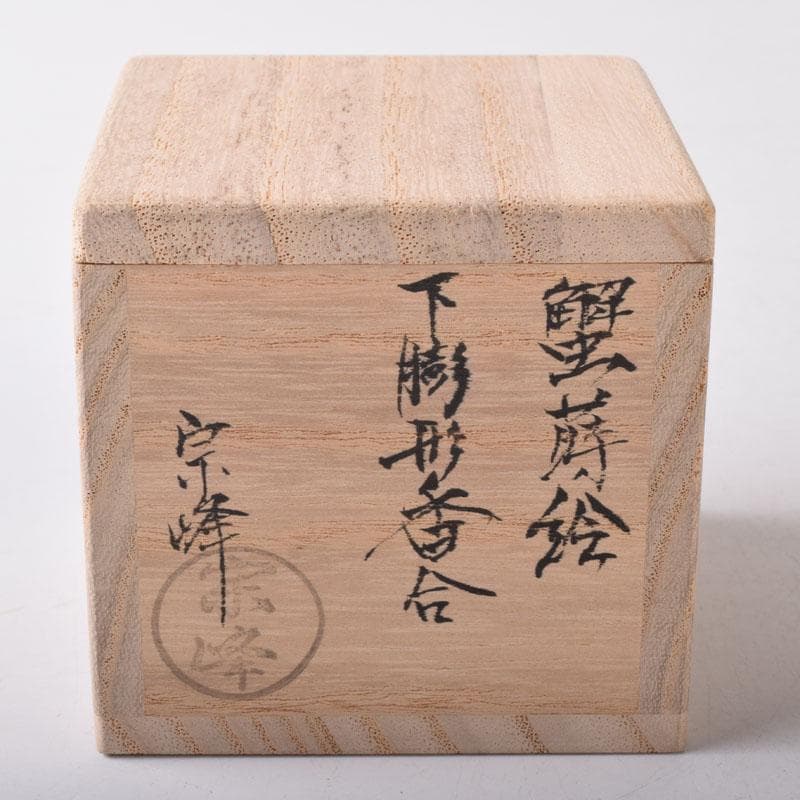 蟹蒔絵
下膨形香合
宗峰
宗峰